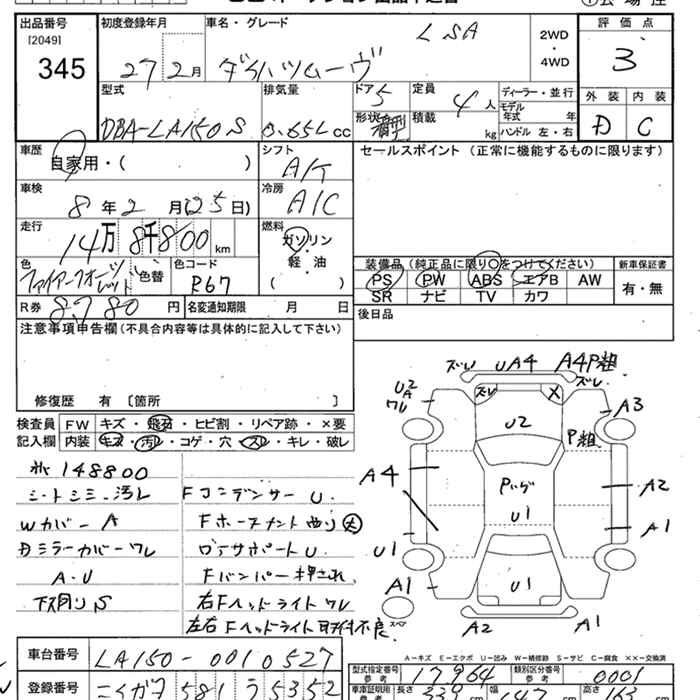 出品番号 初度登録年月 車名・グレード 評価点
[2049]
345
27年2月 ダイハツムーヴ LSA 2WD・4WD 3
外装 内装
D C
型式 排気量 ドア 定員 ディーラー・並行
DBA-LA150S 0.65L cc 5 4人
形状 積載 モデル年式 年
kg ハンドル 左・右
車歴 シフト セールスポイント (正常に機能するものに限ります)
自家用・( ) A/T
車検 冷房
8年2月(25日) A/C
走行 燃料
14万8千800km ガソリン・軽・油
( )
色 色替 色コード
R67
装備品 (純正品に限り○をつけてください) 新車保証書
PS PW ABS エアB AW 有・無
SR ナビ TV カワ
R券 8780円 名変通知期限 月 日
後日品
注意事項申告欄(不具合内容等は具体的に記入して下さい)
修復歴 有 〔箇所 〕
検査員 FW キズ・飛石・ヒビ割・リペア跡・×要
記入欄 内装 キズ・汚れ・コゲ・穴・スレ・キレ・破レ
148800
シートシミ・汚レ FコンデンサーU.
Wカバー A
ミラーカバーワレ ロアサポートU.
A・U Fバンパー押され
下廻りS 右Fヘッドライトワレ
左右Fヘッドライト取付不良
ズレ UA4 A4P粗
ズレ
U2
A
ワレ
ズレ X
A3
U2
P粗
A4
A2
U1
A1
U1
A1
U1
スペア
A2 A1
A-キズ E-エクボ U-凹み W-補修跡 S-サビ C-腐食 XX-交換済
車台番号 LA150-0010527
型式指定番号 参考 17964 類別区分番号 参考 0001
登録番号 ニイガタ 581 う 5352
車庫証明用 参考 長さ 339 cm 幅 47 cm 高さ